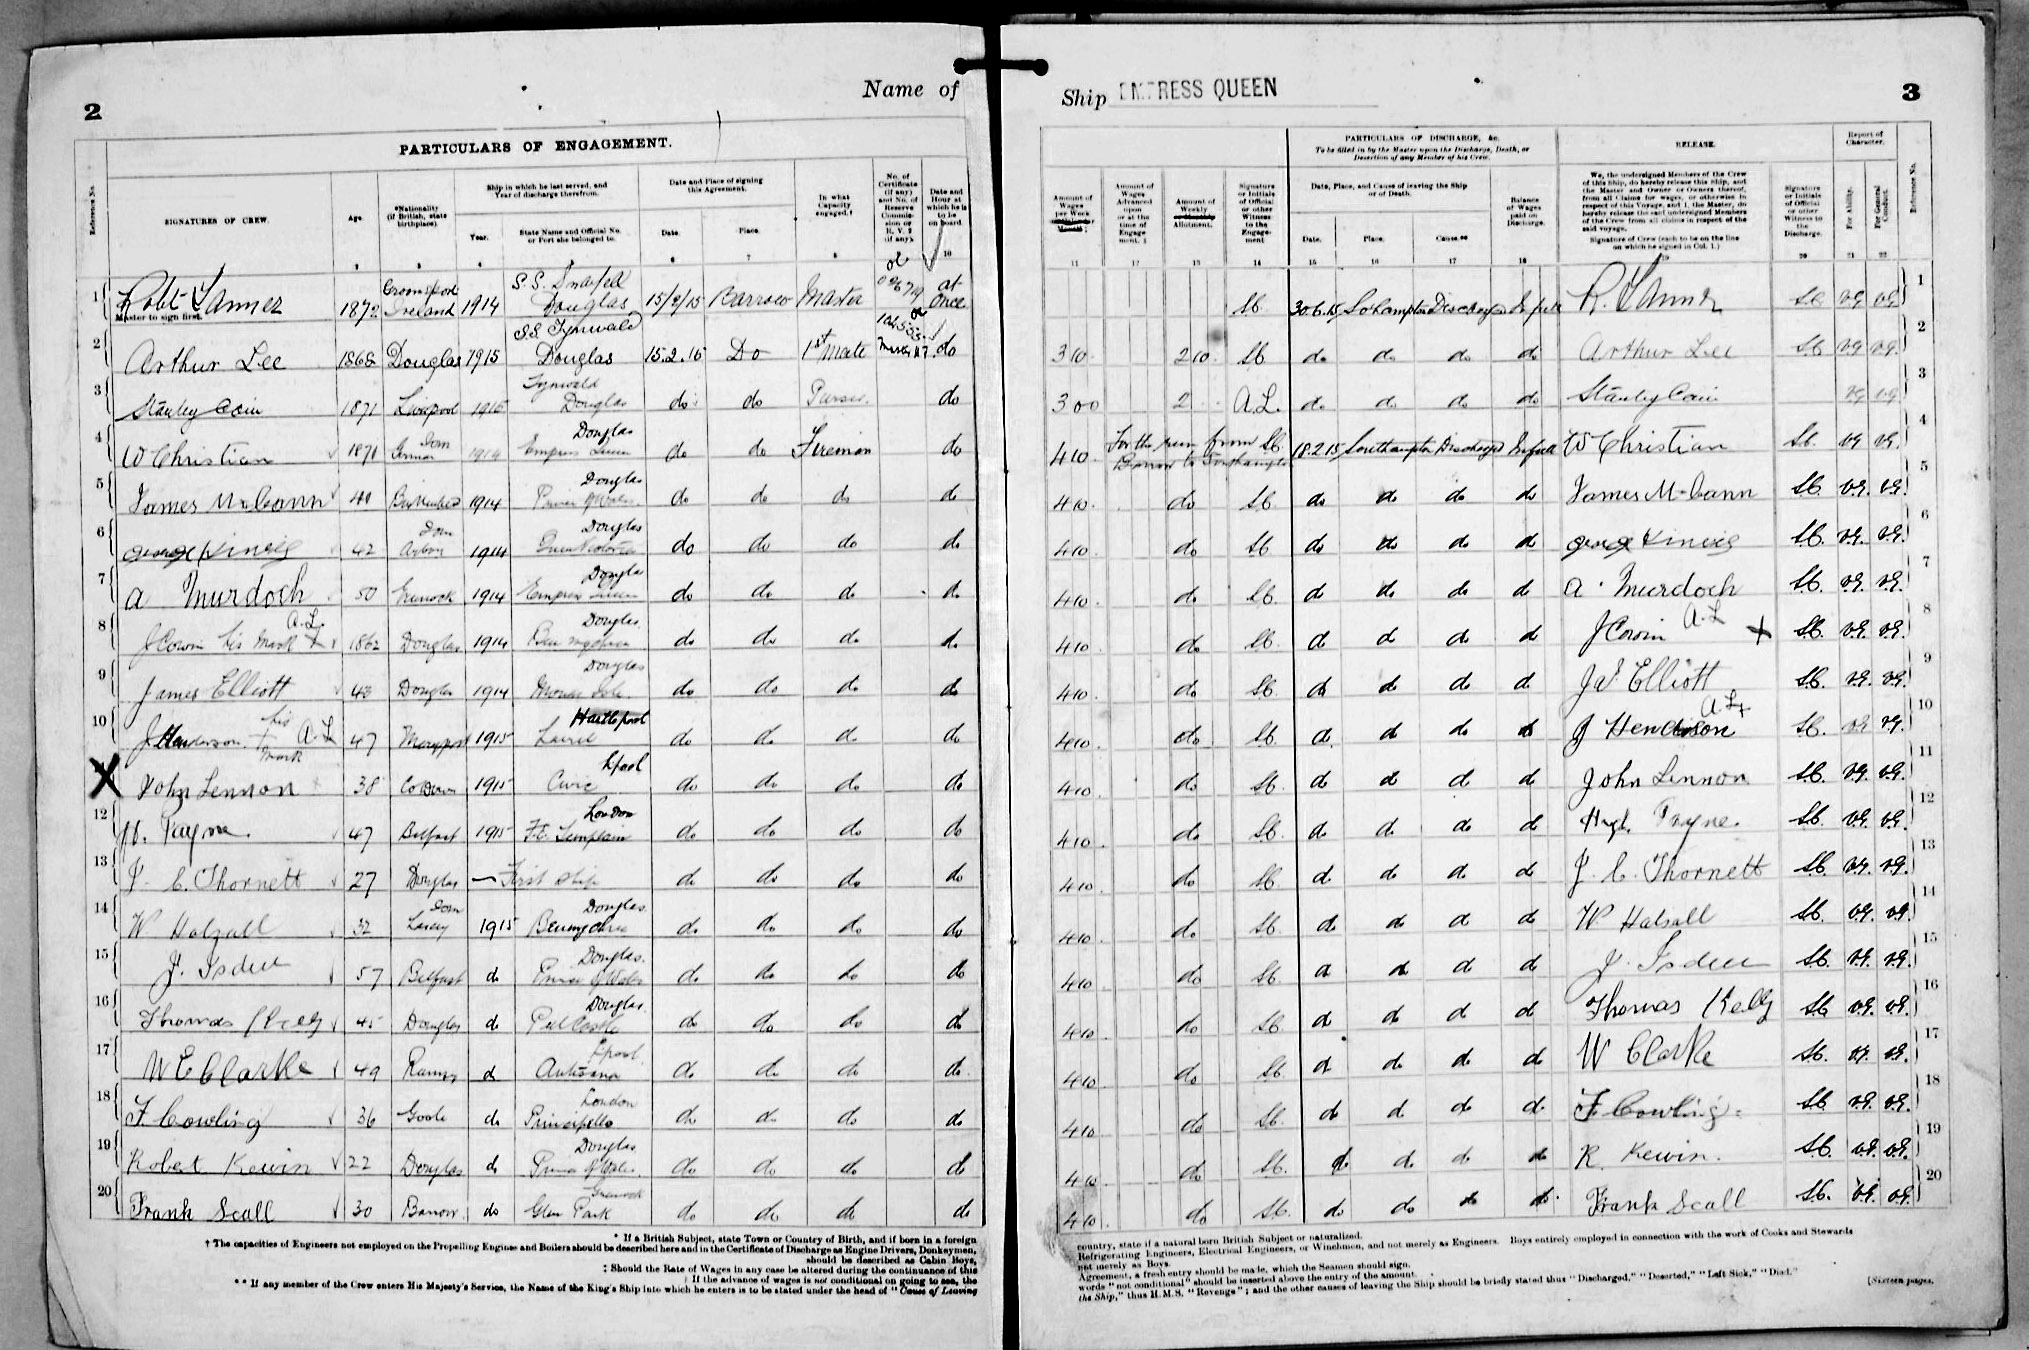 2
Name of
PARTICULARS OF ENGAGEMENT.
Reference No.
SIGNATURES OF CREW.
Age.
*Nationality (if British, state birthplace)
Ship in which he last served, and Year of discharge therefrom.
Year.
State Name and Official No. or Port she belonged to.
Date and Place of signing this Agreement.
Date.
Place.
In what Capacity engaged.†
No. of Certificate (if any) and No. of Reserve Commission or R.V.2 (if any).
Date and Hour at which he is to be on board.
1 Robt Master to sign first. 1872 Ireland 1914 S.S. Snaefell Douglas 15/2/15 Barrow Master at once
2 Arthur Lee 1868 Douglas 1915 S.S. Tynwald Douglas 15.2.15 Do 1st Mate do
3 Stanley Cain 1871 Liverpool 1915 Tynwald Douglas do do Purser do
4 W Christian 1871 Iom 1914 Empress Queen Douglas do do Fireman do
5 James McCann Birkenhead 1914 Prince of Wales Douglas do do do do
6 George 42 Iom 1914 Queen Victoria Douglas do do do do
7 A Murdoch 50 Greenock 1914 Empress Queen Douglas do do do do
8 J Cowin his mark X A.L. 1862 Douglas 1914 Ben my Chree Douglas do do do do
9 James Elliott 43 Douglas 1914 Monas Isle Douglas do do do do
10 J Henderson his + mark A.L. 47 Maryport 1915 Laurel Hartlepool do do do do
X John Lennon 38 Co Down 1915 Civic Lpool do do do do
12 H. Payne 47 Belfast 1915 London do do do do
13 J. C. Thornett 27 Douglas — First ship do do do do
14 W Halsall 32 Iom Laxey 1915 Benmychree Douglas do do do do
15 J. 57 Belfast do Prince of Wales Douglas do do do do
16 Thomas Kelly 45 Douglas do Peel Castle Douglas do do do do
17 W E Clarke 49 Ramsey do Lpool do do do do
18 F. Cowling 36 Goole do London do do do do
19 Robert Kewin 22 Douglas do Prince of Wales Douglas do do do do
20 Frank Scall 30 Barrow do Glen Park Greenock do do do do
* If a British Subject, state Town or Country of Birth, and if born in a foreign
† The capacities of Engineers not employed on the Propelling Engines and Boilers should be described here and in the Certificate of Discharge as Engine Drivers, Donkeymen,
should be described as Cabin Boys,
‡ Should the Rate of Wages in any case be altered during the continuance of this
If the advance of wages is not conditional on going to sea, the
** If any member of the Crew enters His Majesty's Service, the Name of the King's Ship into which he enters is to be stated under the head of "Cause of Leaving
Ship EMPRESS QUEEN
3
Amount of Wages per Week
Amount of Wages Advanced upon or at the time of Engagement.‡
Amount of Weekly Allotment.
Signature or Initials of Official or other Witness to the Engagement
PARTICULARS OF DISCHARGE, &c.
To be filled in by the Master upon the Discharge, Death, or Desertion of any Member of his Crew.
Date, Place, and Cause of leaving the Ship or of Death.
Date.
Place.
Cause.**
Balance of Wages paid on Discharge.
RELEASE.
We, the undersigned Members of the Crew of this Ship, do hereby release this Ship, and the Master and Owner or Owners thereof, from all Claims for wages, or otherwise in respect of this Voyage, and I, the Master, do hereby release the said undersigned Members of the Crew from all claims in respect of the said voyage.
Signature of Crew (each to be on the line on which he signed in Col. 1.)
Signature or Initials of Official or other Witness to the Discharge.
Report of Character.
For Ability.
For General Conduct.
Reference No.
30.6.15 Sohampton Discharged In full R. VG VG 1
310 210 do do do do Arthur Lee VG VG 2
300 2 A.L. do do do do Stanley Cain VG VG 3
410 For the run from Barrow to Southampton 18.2.15 Southampton Discharged In full W Christian VG VG 4
410 do do do do do James McCann VG. VG. 5
410 do do do do do George VG. VG. 6
410 do do do do do A. Murdoch VG. VG. 7
410 do do do do do J Cowin A.L X VG. VG. 8
410 do do do do do Elliott VG. VG. 9
410 do do do do do J Henderson A.L + VG VG. 10
410 do do do do do John Lennon VG. VG. 11
410 do do do do do Hugh Payne. VG. VG. 12
410 do do do do do J. C. Thornett VG. VG. 13
410 do do do do do W Halsall VG. VG. 14
410 do do do do do J. VG. VG. 15
410 do do do do do Thomas Kelly VG. VG. 16
410 do do do do do W Clarke VG. VG. 17
410 do do do do do F. Cowling VG. VG. 18
410 do do do do do R. Kewin. VG. VG. 19
410 do do do do do Frank Scall VG. VG. 20
country, state if a natural born British Subject or naturalized.
Refrigerating Engineers, Electrical Engineers, or Winchmen, and not merely as Engineers. Boys entirely employed in connection with the work of Cooks and Stewards
not merely as Boys.
Agreement, a fresh entry should be made, which the Seamen should sign.
words "not conditional" should be inserted above the entry of the amount.
the Ship," thus H.M.S. "Revenge"; and the other causes of leaving the Ship should be briefly stated thus "Discharged," "Deserted," "Left Sick," "Died."
[Sixteen pages.